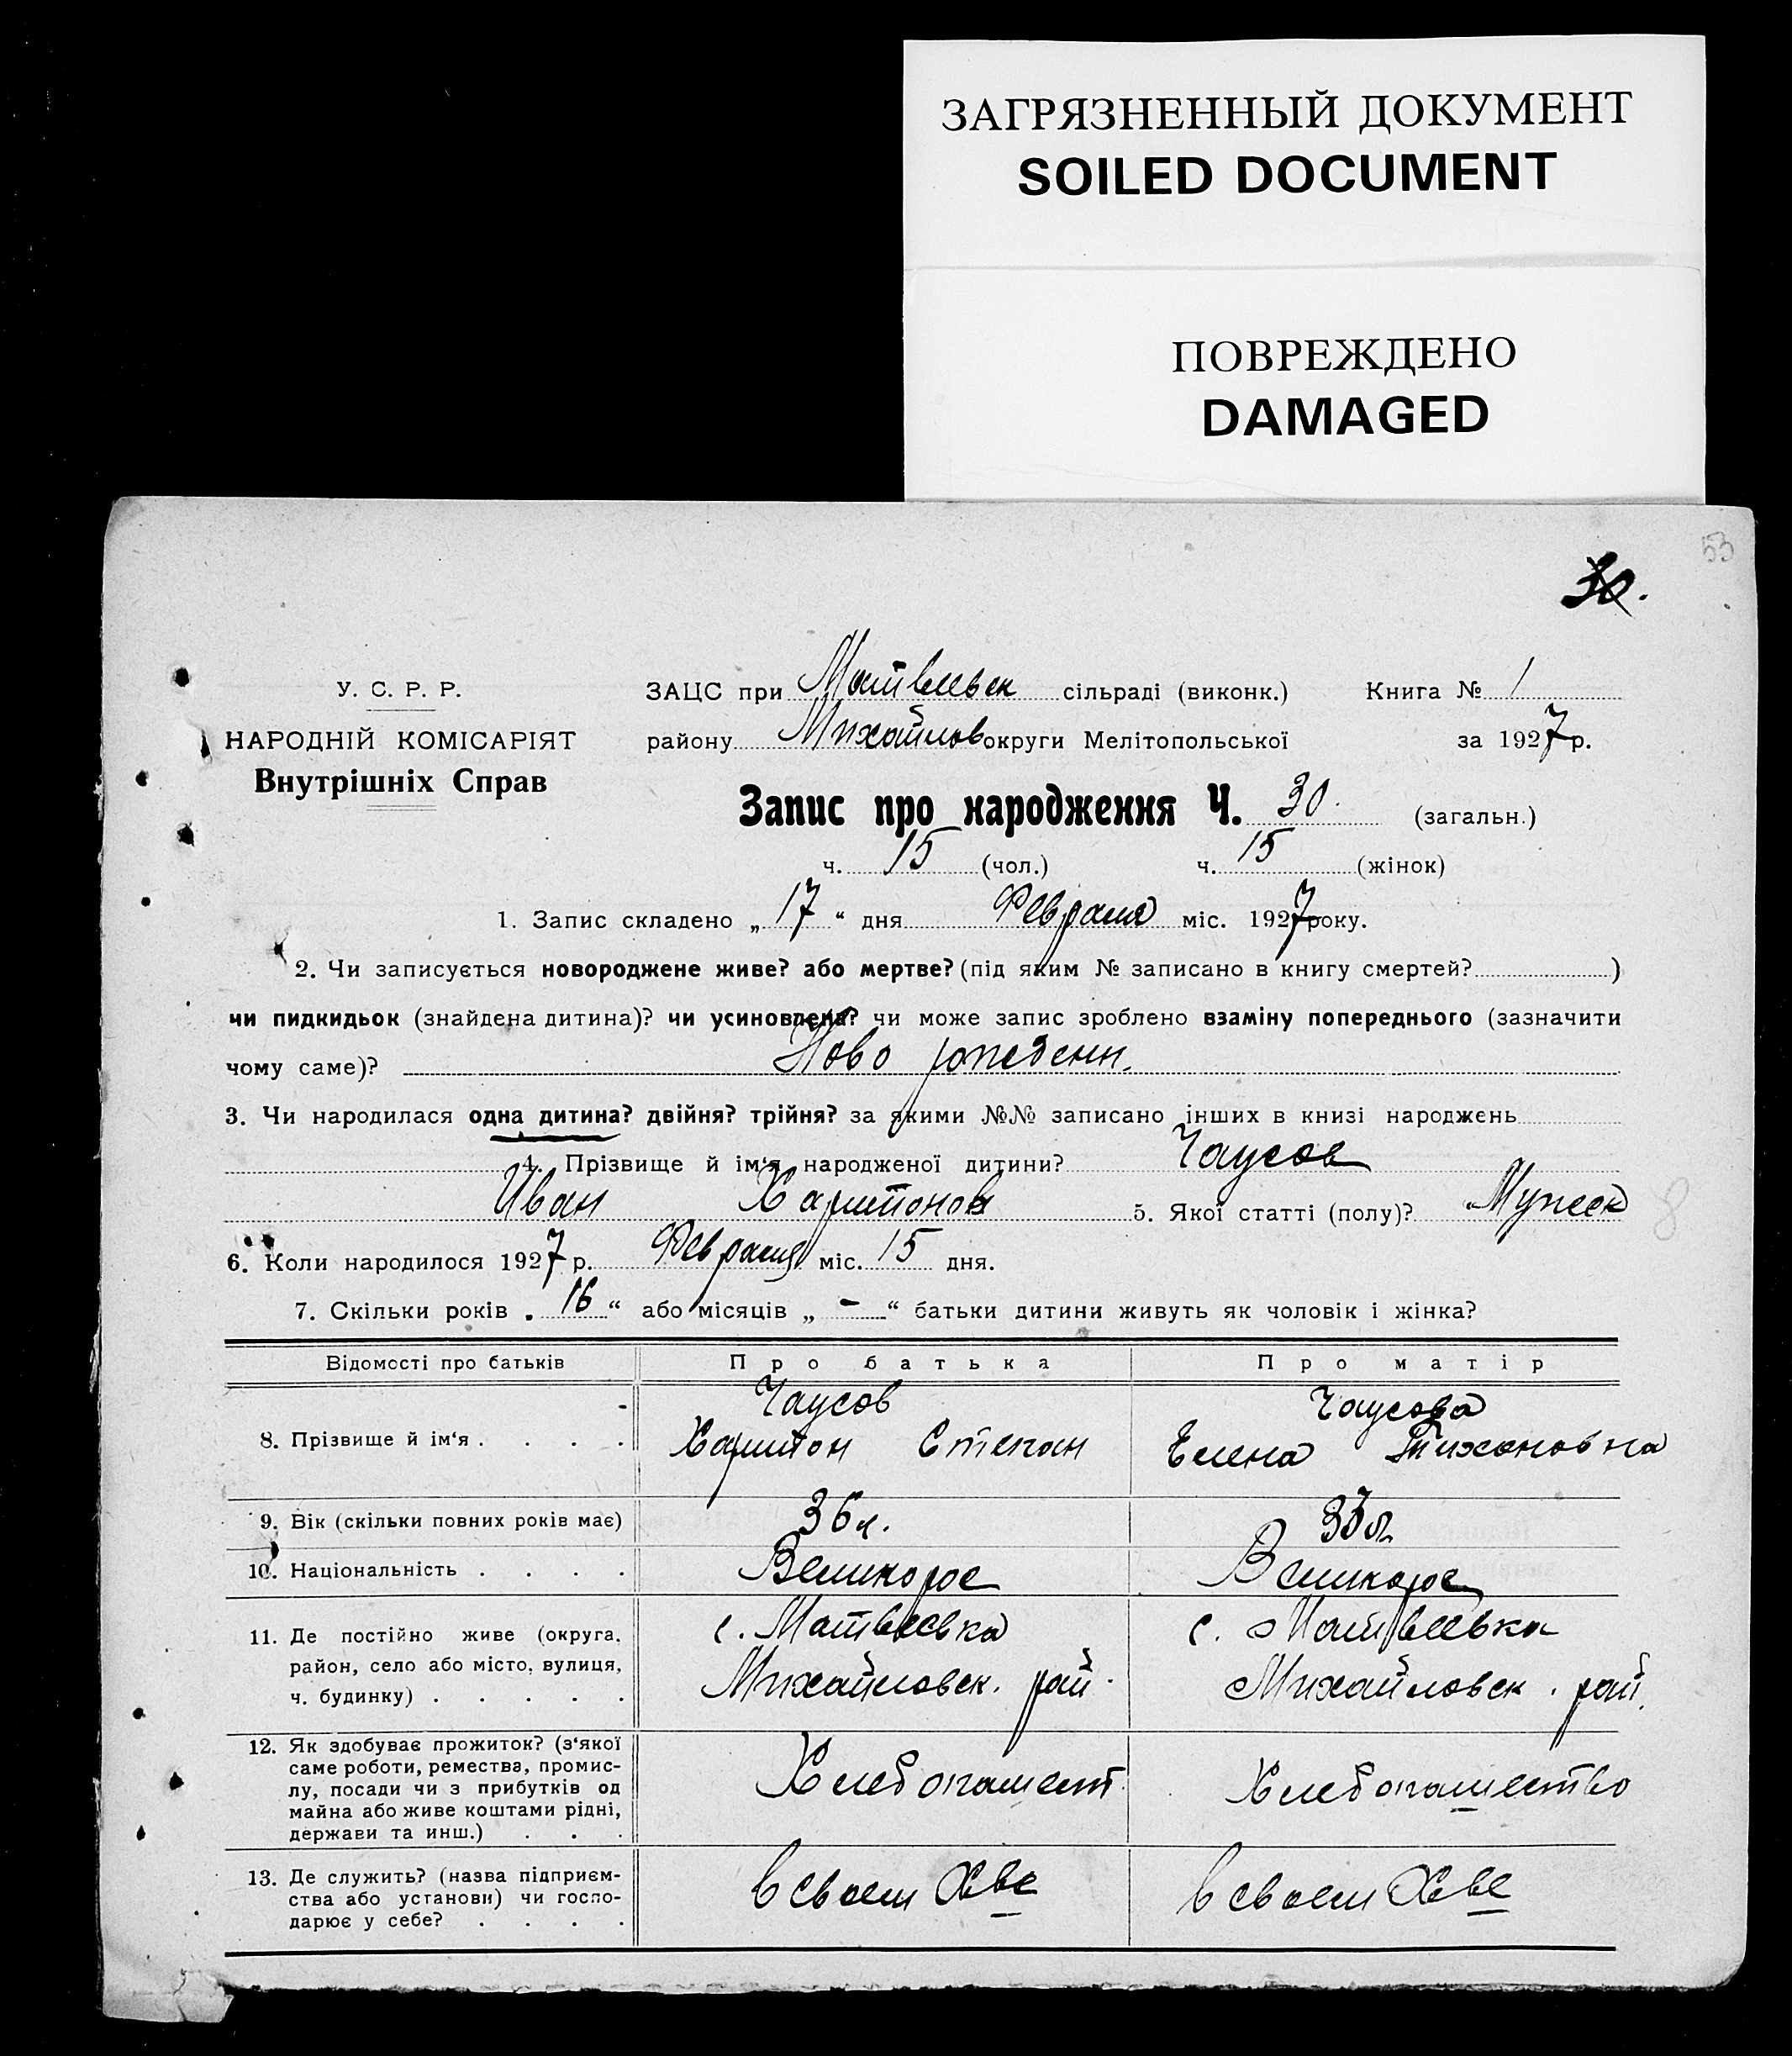 ЗАГРЯЗНЕННЫЙ ДОКУМЕНТ
SOILED DOCUMENT
ПОВРЕЖДЕНО
DAMAGED
53
30.
У. С. Р. Р.
НАРОДНІЙ КОМІСАРІЯТ
Внутрішніх Справ
ЗАЦС при Матвеевск сільраді (виконк.) Книга № 1
району Михайлов округи Мелітопольської за 1927 р.
Запис про народження Ч. 30. (загальн.)
ч. 15 (чол.) ч. 15 (жінок)
1. Запис складено „17“ дня Февраля міс. 1927 року.
2. Чи записується новороджене живе? або мертве? (під яким № записано в книгу смертей? )
чи пидкидьок (знайдена дитина)? чи усиновлена? чи може запис зроблено взаміну попереднього (зазначити
чому саме)? Ново рожденн.
3. Чи народилася одна дитина? двійня? трійня? за якими №№ записано інших в книзі народжень
4. Прізвище й ім‘я народженої дитини? Чаусов
Иван Харитонов 5. Якої статті (полу)? Мужск
8
6. Коли народилося 1927 р. Февраля міс. 15 дня.
7. Скільки років „16“ або місяців „-“ батьки дитини живуть як чоловік і жінка?
Відомості про батьків Про батька Про матір
8. Прізвище й ім‘я . . . .
Чаусов
Харитон Степан
Чаусова
Елена Тихоновна
9. Вік (скільки повних років має) 36 л. 33 л.
10. Національність . . . . Великорос Великорос
11. Де постійно живе (округа,
район, село або місто, вулиця,
ч. будинку) . . . . .
с. Матвеевка
Михайловск. рай.
с. Матвеевка
Михайловск. рай.
12. Як здобуває прожиток? (з‘якої
саме роботи, ремества, промис-
лу, посади чи з прибутків од
майна або живе коштами рідні,
держави та инш.) . . .
Хлебопашест.
Хлебопашество
13. Де служить? (назва підприєм-
ства або установи) чи госпо-
дарює у себе? . . . .
в своем Хве
в своем Хве